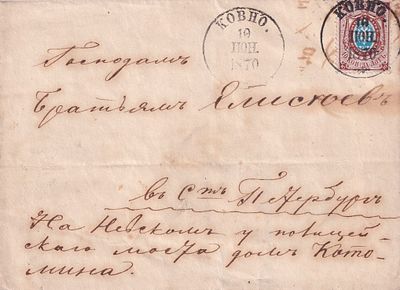 КОВНО.
10
ІЮН.
1870
КОВНО.
10
ІЮН.
1870
Господамъ
Братьямъ Елисѣевъ
въ Ст. Петербургъ
На Невскомъ у полицей-
скаго моста домъ Кото-
мина.